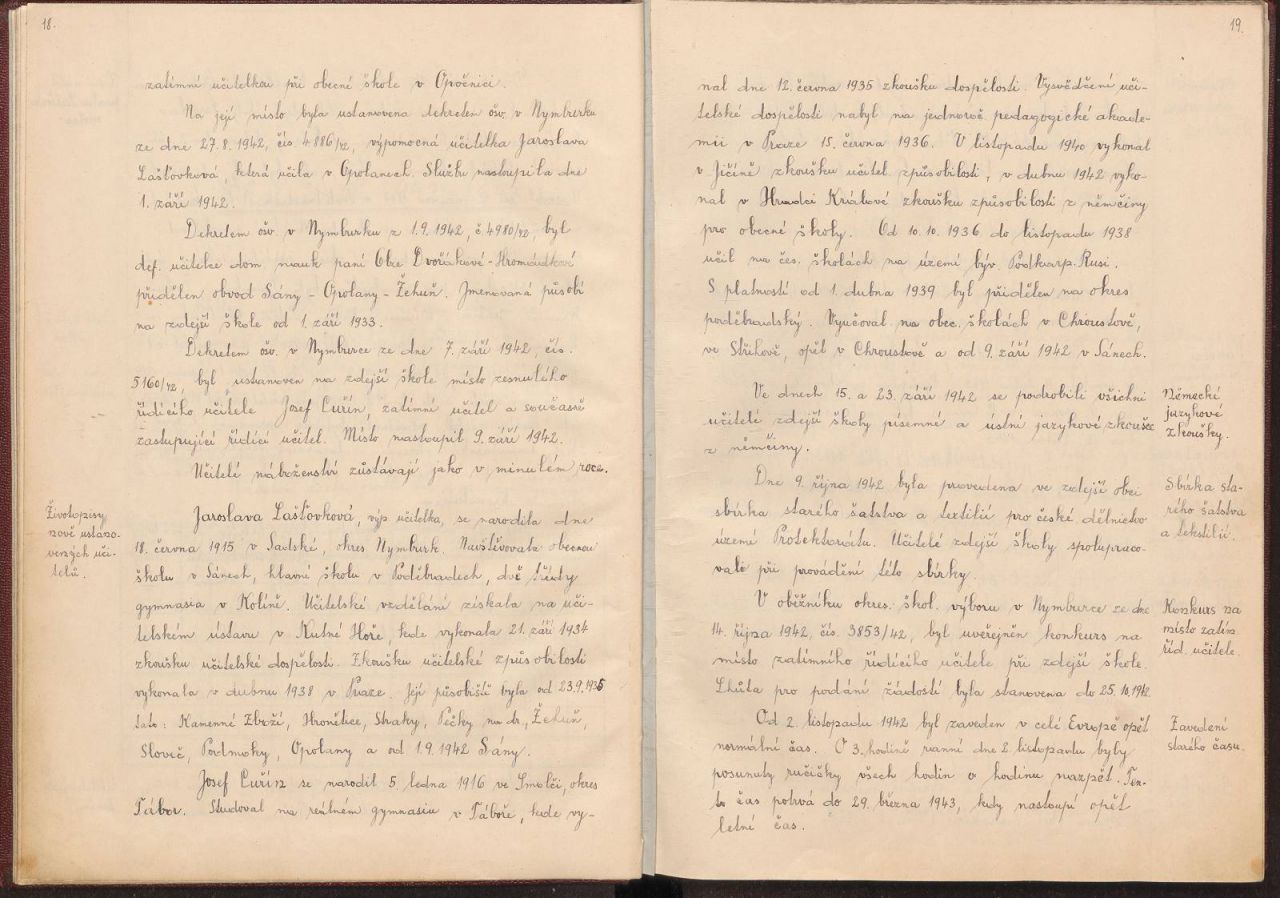 18.
zatímní učitelkou při obecné škole v Opočnici.
Na její místo byla ustanovena dekretem ošv. v Nymburku
ze dne 27.8. 1942, čís. 4886/42, výpomocná učitelka Jaroslava
Lášťovková, která učila v Opolanech. Službu nastoupila dne
1. září 1942.
Dekretem ošv. v Nymburku z 1.9. 1942, č. 4980/42, byl
def. učitelce dom. nauk paní Olze Dvořákové-Hromádkové
přidělen obvod Sány - Opolany - Žehuň. Jmenovaná působí
na zdejší škole od 1. září 1933.
Dekretem ošv. v Nymburce ze dne 7. září 1942, čís.
5160/42, byl ustanoven na zdejší škole místo zesnulého
řídícího učitele Josef Cuřín, zatímní učitel a současně
zastupující řídící učitel. Místo nastoupil 9. září 1942.
Učitelé náboženství zůstávají jako v minulém roce.
Životopisy
nově ustano-
vených uči-
telů.
Jaroslava Lášťovková, výp. učitelka, se narodila dne
18. června 1915 v Sadské, okres Nymburk. Navštěvovala obecnou
školu v Sánech, hlavní školu v Poděbradech, dvě třídy
gymnasia v Kolíně. Učitelské vzdělání získala na uči-
telském ústavu v Kutné Hoře, kde vykonala 21. září 1934
zkoušku učitelské dospělosti. Zkoušku učitelské způsobilosti
vykonala v dubnu 1938 v Praze. Její působiště byla od 23.9.1935
tato: Kamenné Zboží, Hronětice, Straky, Pečky na dr., Žehuň,
Sloveč, Podmoky, Opolany a od 1.9. 1942 Sány.
Josef Cuřín se narodil 5. ledna 1916 ve Smolči, okres
Tábor. Studoval na reálném gymnasiu v Táboře, kde vy-
19.
nal dne 12. června 1935 zkoušku dospělosti. Vysvědčení uči-
telské dospělosti nabyl na jednoroč. pedagogické akade-
mii v Praze 15. června 1936. V listopadu 1940 vykonal
v Jičíně zkoušku učitel. způsobilosti, v dubnu 1942 vyko-
nal v Hradci Králové zkoušku způsobilosti z němčiny
pro obecné školy. Od 10.10. 1936 do listopadu 1938
učil na čes. školách na území býv. Podkarp. Rusi.
S platností od 1. dubna 1939 byl přidělen na okres
poděbradský. Vyučoval na obec. školách v Chroustově,
ve Střihově, opět v Chroustově a od 9. září 1942 v Sánech.
Ve dnech 15. a 23. září 1942 se podrobili všichni
učitelé zdejší školy písemné a ústní jazykové zkoušce
z němčiny.
Německé
jazykové
zkoušky.
Dne 9. října 1942 byla provedena ve zdejší obci
sbírka starého šatstva a textilií pro české dělnictvo
území Protektorátu. Učitelé zdejší školy spolupraco-
vali při provádění této sbírky.
Sbírka sta-
rého šatstva
a tekstilií.
V oběžníku okres. škol. výboru v Nymburce ze dne
14. října 1942, čís. 3853/42, byl uveřejněn konkurs na
místo zatímního řídícího učitele při zdejší škole.
Lhůta pro podání žádostí byla stanovena do 25.10.1942.
Konkurs na
místo zatím.
říd. učitele.
Od 2. listopadu 1942 byl zaveden v celé Evropě opět
normální čas. O 3. hodině ranní dne 2. listopadu byly
posunuty ručičky všech hodin o hodinu nazpět. Ten-
to čas potrvá do 29. března 1943, kdy nastoupí opět
letní čas.
Zavedení
starého času.